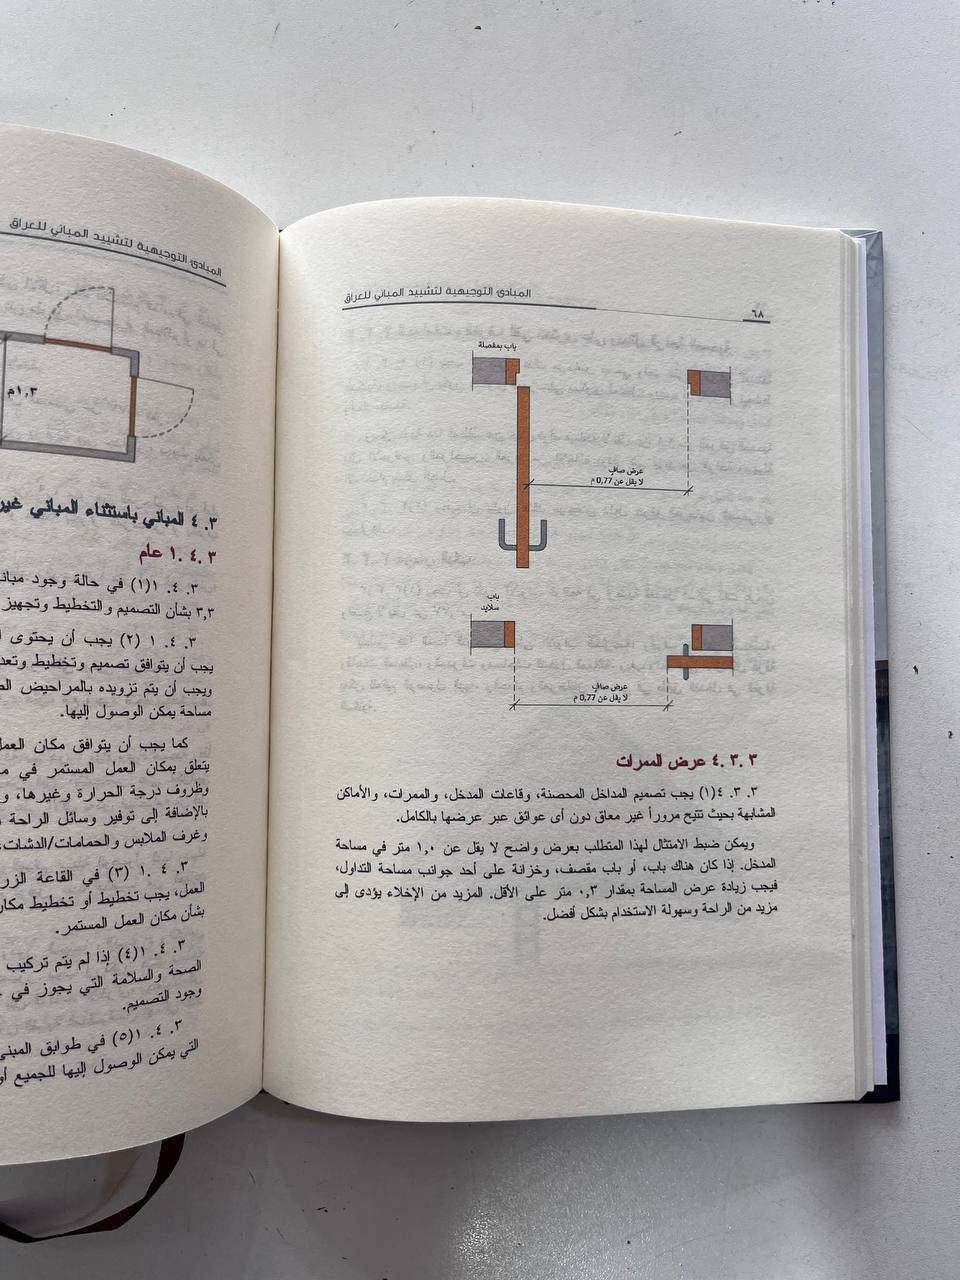 ٦٨
المبادئ التوجيهية لتشييد المباني للعراق
باب بمفصلة
عرض صافٍ
لا يقل عن 0,77 م
باب
سلايد
عرض صافٍ
لا يقل عن 0,77 م
٣. ٣. ٤ عرض الممرات
٣. ٣. ٤(١) يجب تصميم المداخل المحصنة، وقاعات المدخل، والممرات، والأماكن
المشابهة بحيث تتيح مروراً غير معاق دون أى عوائق عبر عرضها بالكامل.
ويمكن ضبط الامتثال لهذا المتطلب بعرض واضح لا يقل عن ١,٠ متر في مساحة
المدخل. إذا كان هناك باب، أو باب مقصف، وخزانة على أحد جوانب مساحة التداول،
فيجب زيادة عرض المساحة بمقدار ٠,٣ متر على الأقل. المزيد من الإخلاء يؤدى إلى
مزيد من الراحة وسهولة الاستخدام بشكل أفضل.
المبادئ التوجيهية لتشييد المباني للعراق
١,٣م
٣. ٤ المباني باستثناء المباني غير
٣. ٤. ١ عام
٣. ٤. ١(١) في حالة وجود
٣,٣ بشأن التصميم والتخطيط وتجهيز
٣. ٤. ١ (٢) يجب أن يحتوى
يجب أن يتوافق تصميم وتخطيط
ويجب أن يتم تزويده بالمراحيض
مساحة يمكن الوصول إليها.
كما يجب أن يتوافق مكان العمل
يتعلق بمكان العمل المستمر في
وظروف درجة الحرارة وغيرها،
بالإضافة إلى توفير وسائل الراحة
وغرف الملابس والحمامات/الدشات،
٣. ٤. ١ (٣) في القاعة
العمل، يجب تخطيط أو تخطيط
بشأن مكان العمل المستمر.
٣. ٤. ١(٤) إذا لم يتم تركيب
الصحة والسلامة التي يجوز في
وجود التصميم.
٣. ٤. ١(٥) في طوابق
التي يمكن الوصول إليها للجميع